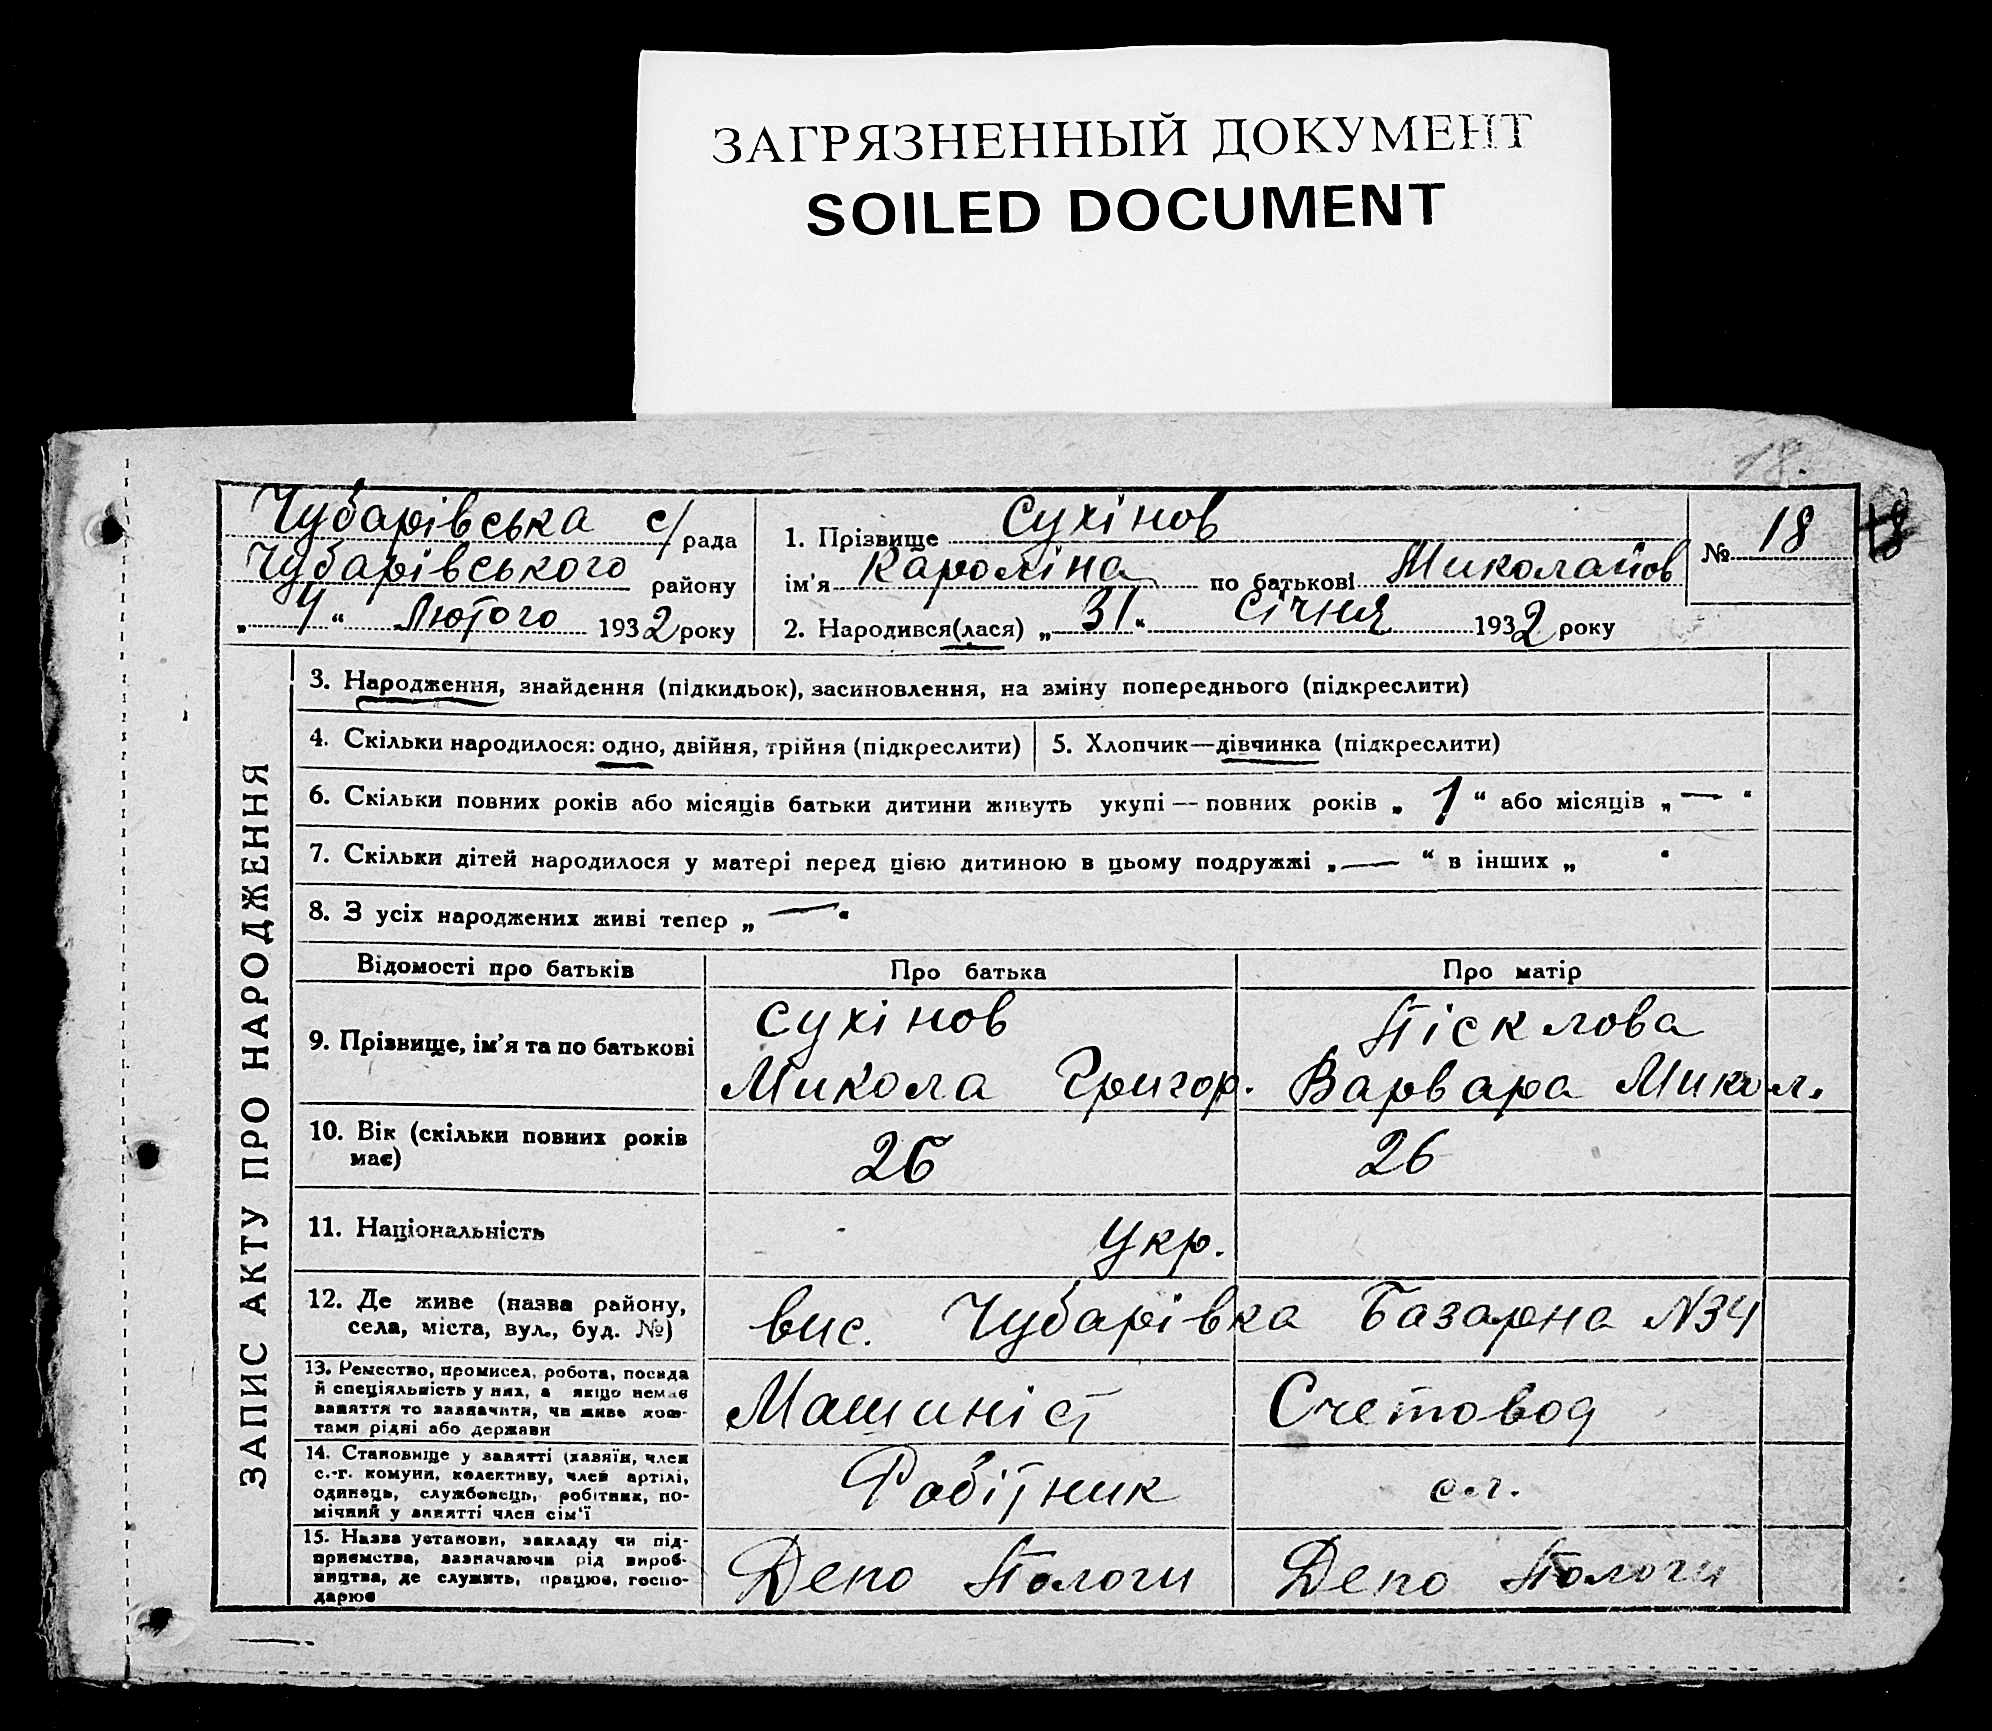 ЗАГРЯЗНЕННЫЙ ДОКУМЕНТ
SOILED DOCUMENT
18.
Чубарівська с/рада
Чубарівського району
„4“ Лютого 1932 року
1. Прізвище Сухінов
ім'я Кароліна по батькові Миколайов
2. Народився(лася) „31“ Січня 1932 року
№ 18
18
ЗАПИС АКТУ ПРО НАРОДЖЕННЯ
3. Народження, знайдення (підкидьок), засиновлення, на зміну попереднього (підкреслити)
4. Скільки народилося: одно, двійня, трійня (підкреслити)
5. Хлопчик—дівчинка (підкреслити)
6. Скільки повних років або місяців батьки дитини живуть укупі — повних років „1“ або місяців „—“
7. Скільки дітей народилося у матері перед цією дитиною в цьому подружжі „—“ в інших „ “
8. З усіх народжених живі тепер „—“
Відомості про батьків
Про батька
Про матір
9. Прізвище, ім'я та по батькові
Сухінов
Микола Григор.
Пісклова
Варвара Микол.
10. Вік (скільки повних років
має)
26
26
11. Національність
Укр.
12. Де живе (назва району,
села, міста, вул., буд. №)
вис. Чубарівка Базарна №34
13. Ремество, промисел, робота, посада
й спеціяльність у них, а якщо немає
заняття то зазначити, чи живе кош-
тами рідні або держави
Машиніст
Счетовод
14. Становище у занятті (хазяїн, член
с.-г. комуни, колективу, член артілі,
одинець, службовець, робітник, по-
мічний у занятті член сім'ї
Робітник
15. Назва установи, закладу чи під-
приємства, зазначаючи рід вироб-
ництва, де служить, працює, госпо-
дарює
Депо Пологи
Депо Пологи